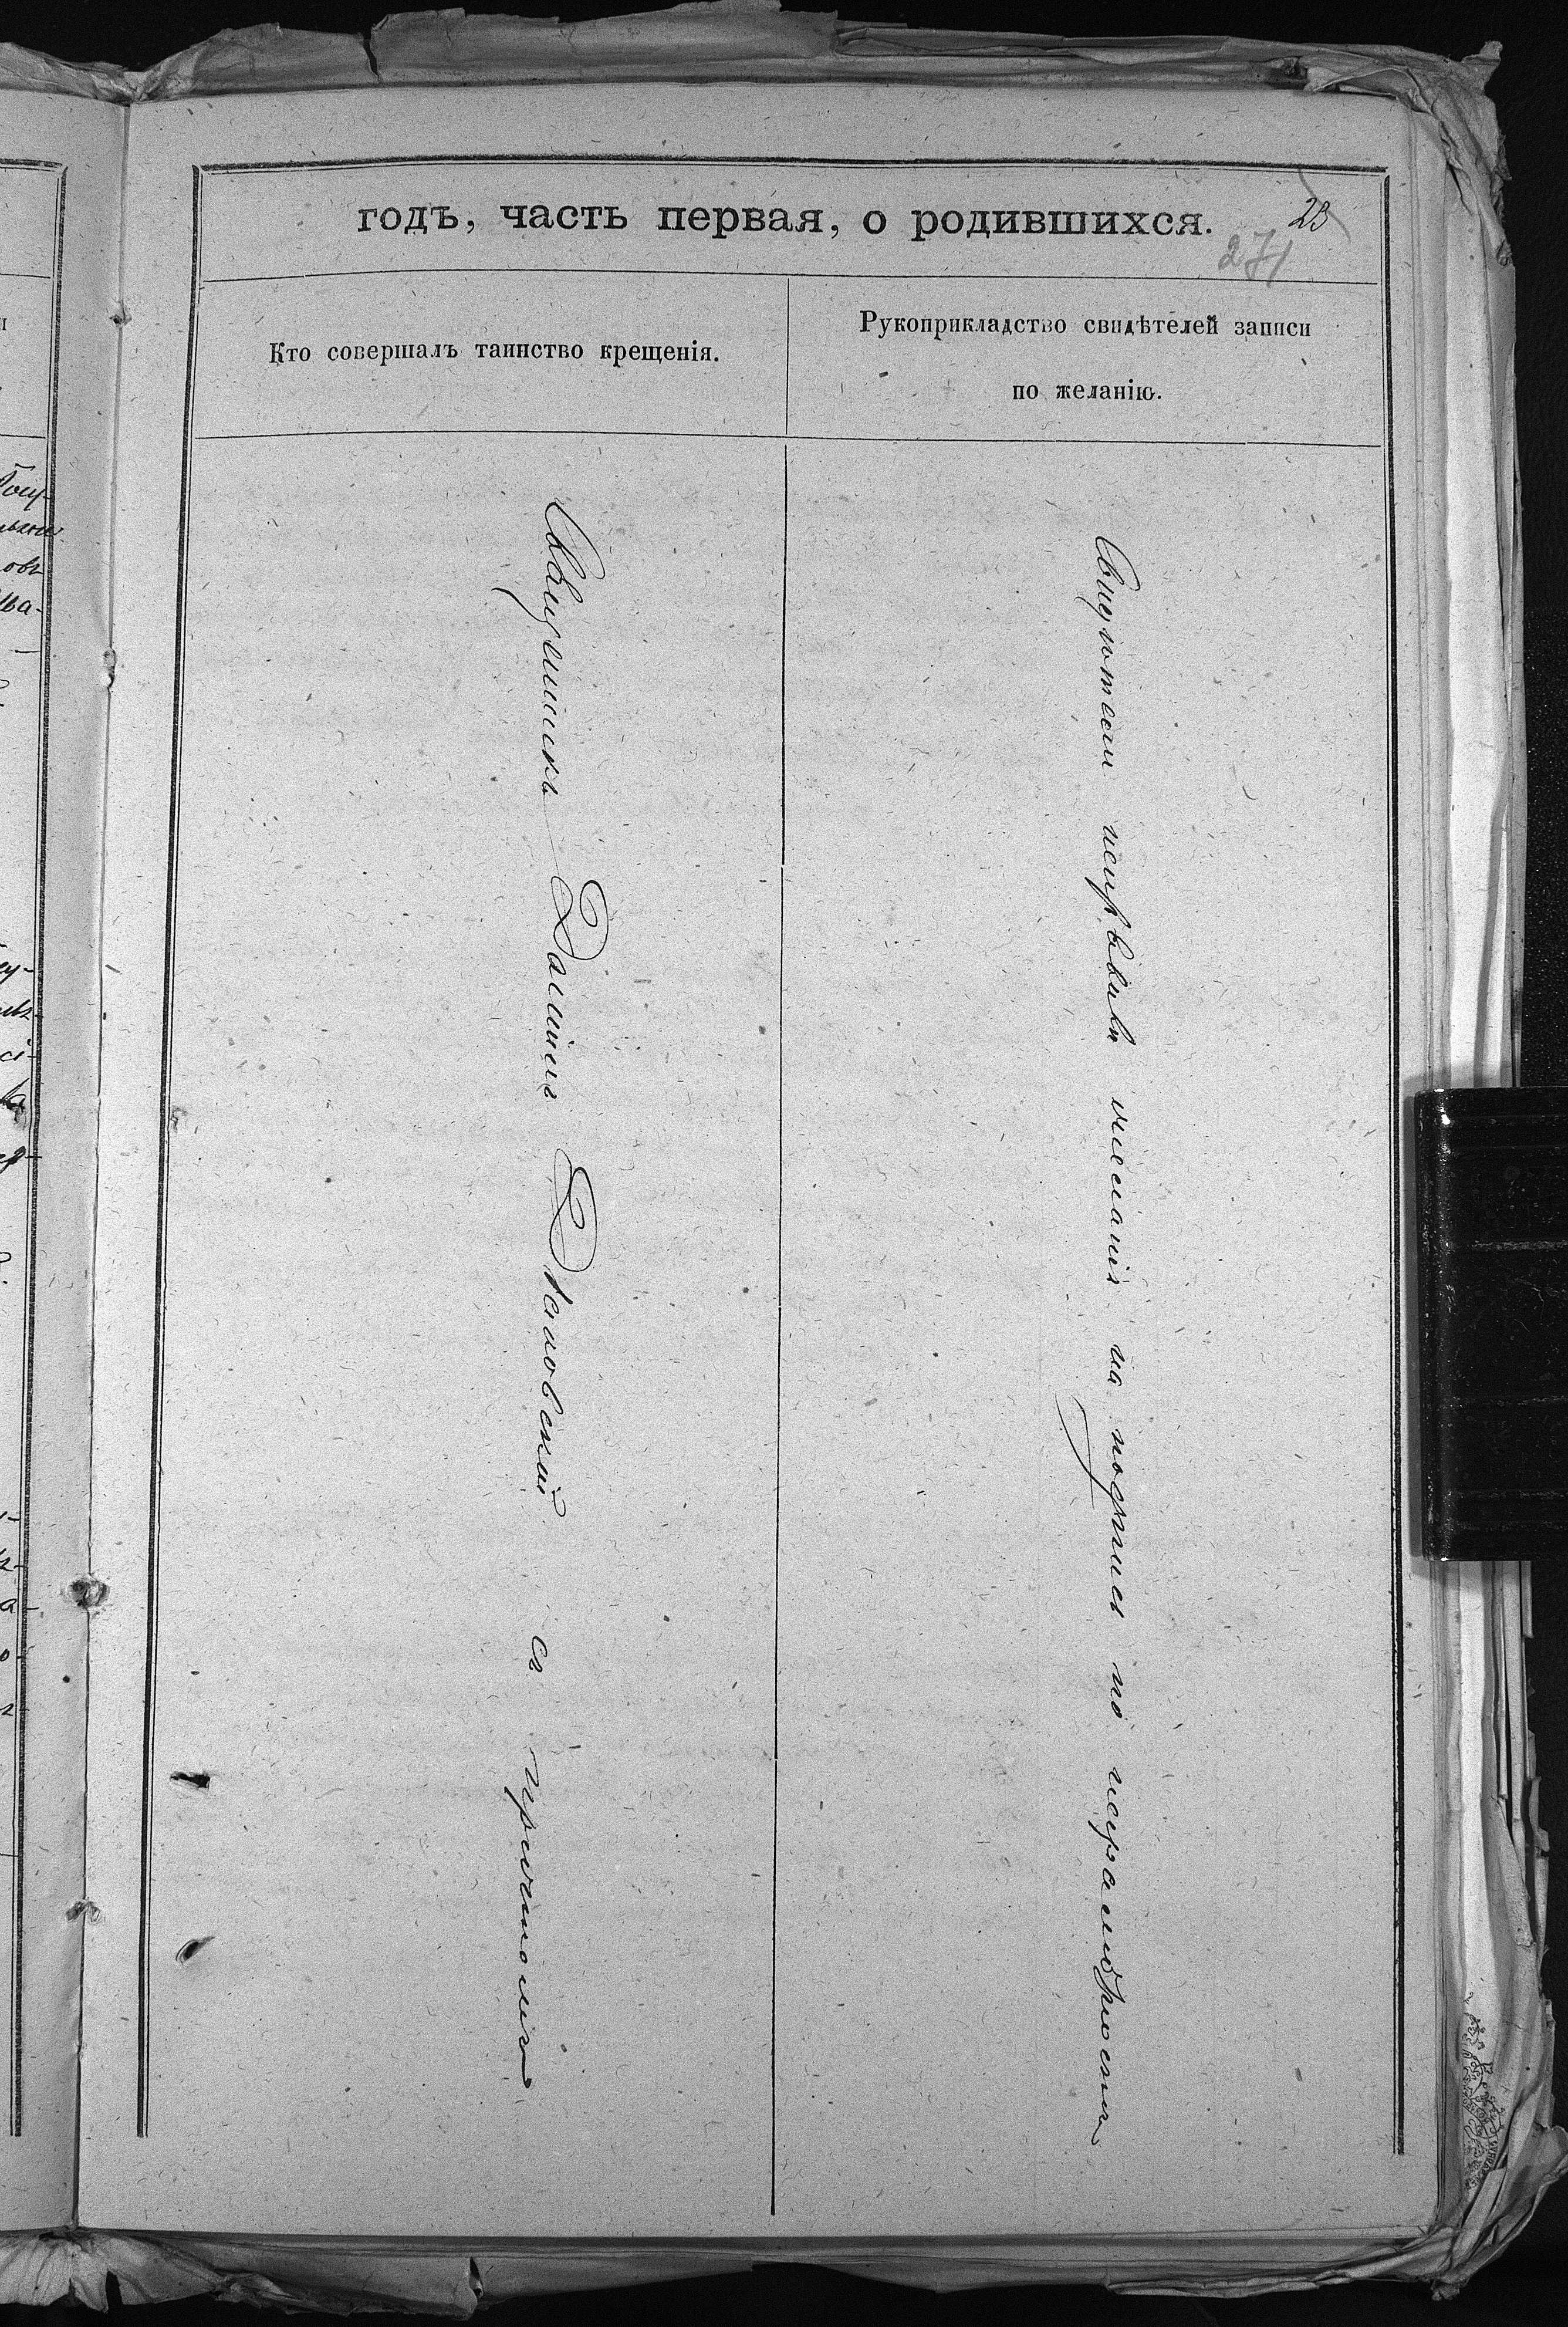 годъ, часть первая, о родившихся.
23
271
Кто совершалъ таинство крещенія.
Рукоприкладство свидѣтелей записи
по желанію.
Священникъ Даніилъ съ причтомъ
Свидѣтели неизъявили желанія на подпись по неграмотности